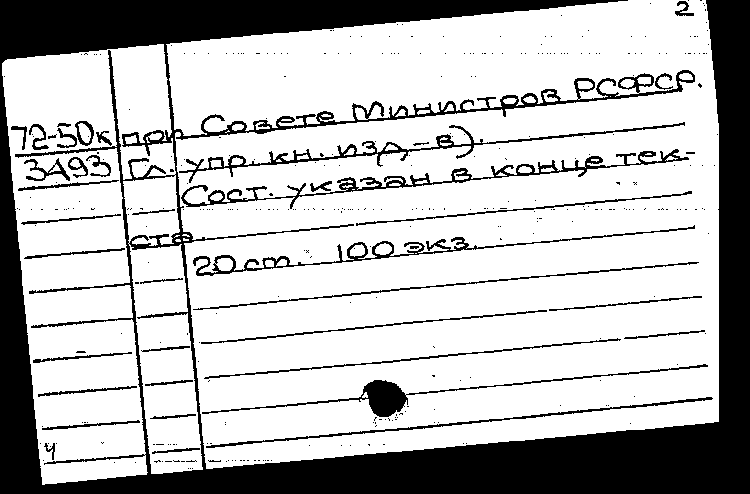 2
72-50к при Совете Министров РСФСР.
3493 Гл. упр. кн. изд-в).
Сост. указан в конце тек-
ста.
20 ст. 100 экз.
4